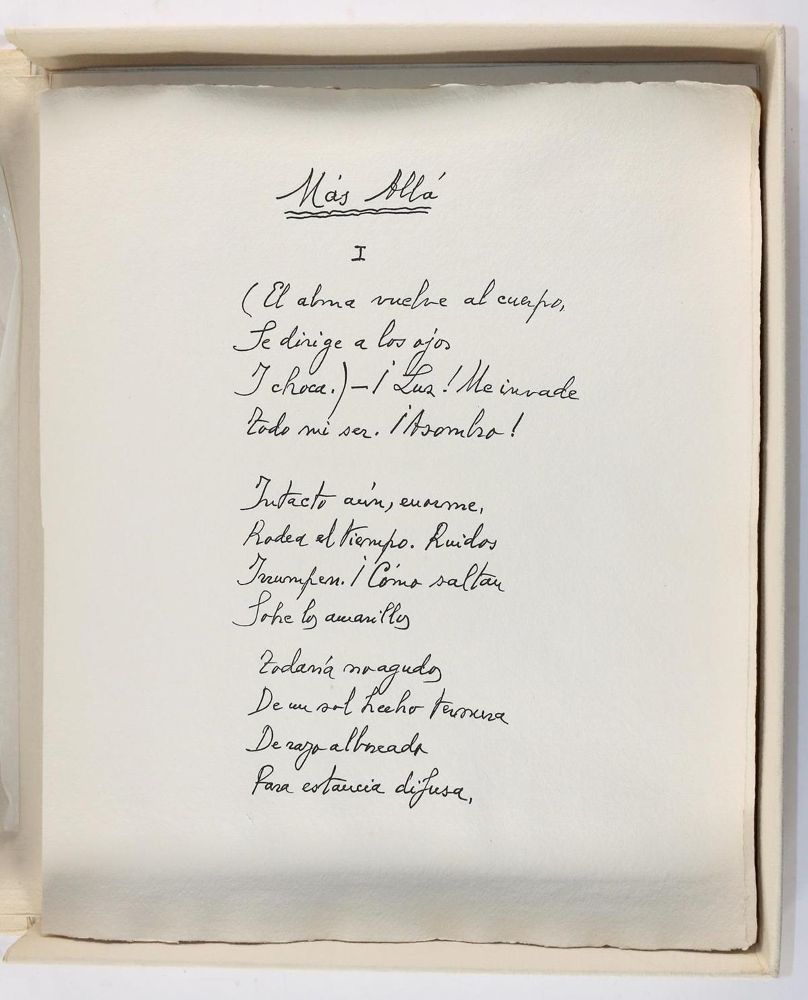 Más Allá
I
(El alma vuelve al cuerpo,
Se dirige a los ojos
Y choca.) — ¡Luz! Me invade
Todo mi ser. ¡Asombro!
Intacto aún, enorme,
Rodea el tiempo. Ruidos
Irrumpen. ¡Cómo saltan
Sobre los amarillos
Todavía no agudos
De un sol hecho ternura
De rayo alboreado
Para estancia difusa,